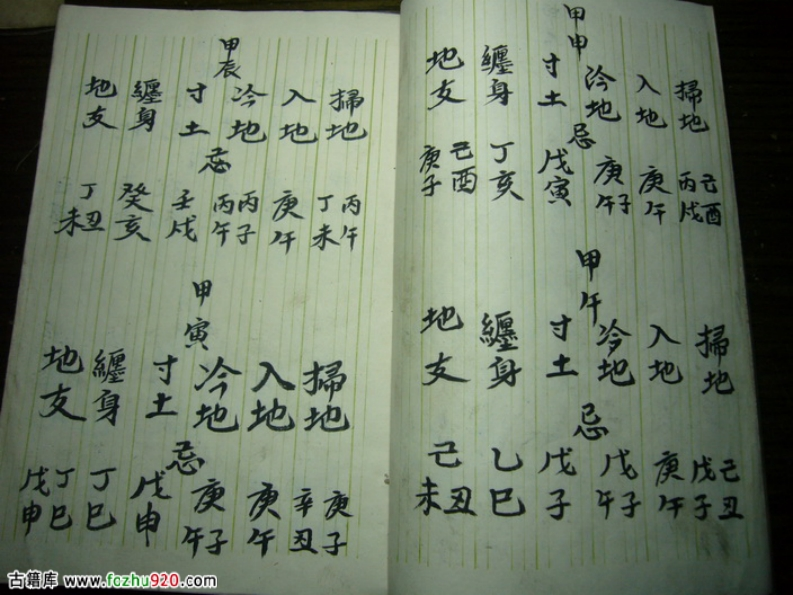 甲申
掃地
入地
冷地
寸土
纏身
地支
忌
己酉
丙戌
庚午
庚子午
戊寅
丁亥
己酉
庚子
甲午
掃地
入地
冷地
寸土
纏身
地支
忌
己丑
戊子
庚午
戊子午
戊子
乙巳
己丑未
甲辰
掃地
入地
冷地
寸土
纏身
地支
忌
丙午
丁未
庚午
丙子
丙午
壬戌
癸亥
丁丑未
甲寅
掃地
入地
冷地
寸土
纏身
地支
忌
庚子
辛丑
庚午
庚子午
戊申
丁巳
丁巳
戊申
古籍库 www.fozhu920.com